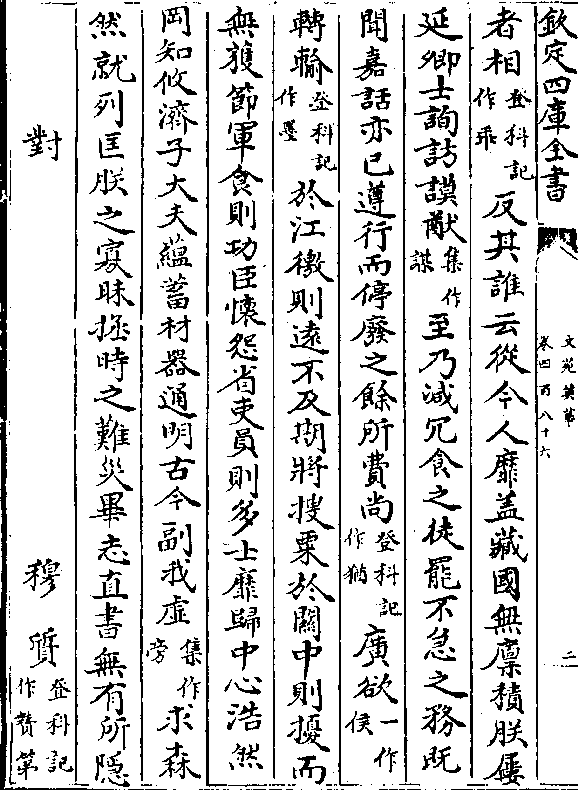 欽定四庫全書
文苑英華
卷四百八十六
二
者相登科記作乖反其誰云從今人靡盖藏國無廪積朕屢
延卿士詢訪謨猷集作謀至乃減冗食之徒罷不急之務既
聞嘉話亦已遵行而停廢之餘所費尚登科記作猶廣欲一作侯
轉輸登科記作粟於江徼則遠不及期將搜粟於關中則擾而
無獲節軍食則功臣懐怨省吏員則多士靡歸中心浩然
罔知攸濟子大夫蘊蓄材器通明古今副我虚集作旁求森
然就列匡朕之寡昧拯時之難災畢志直書無有所隠
對
穆質登科記作贄第